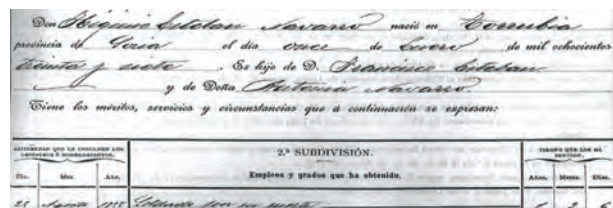 Don Higinio Esteban Navarro nació en Torrubia
provincia de Soria el día once de Enero de mil ochocientos
treinta y siete. Es hijo de D. Francisco Esteban
y de Doña Antonia Navarro.
Tiene los méritos, servicios y circunstancias que á continuación se expresan:
2.ª SUBDIVISIÓN.
Empleos y grados que ha obtenido.
Día. Mes. Año. Años. Meses. Días.
Agosto Soldado por su suerte